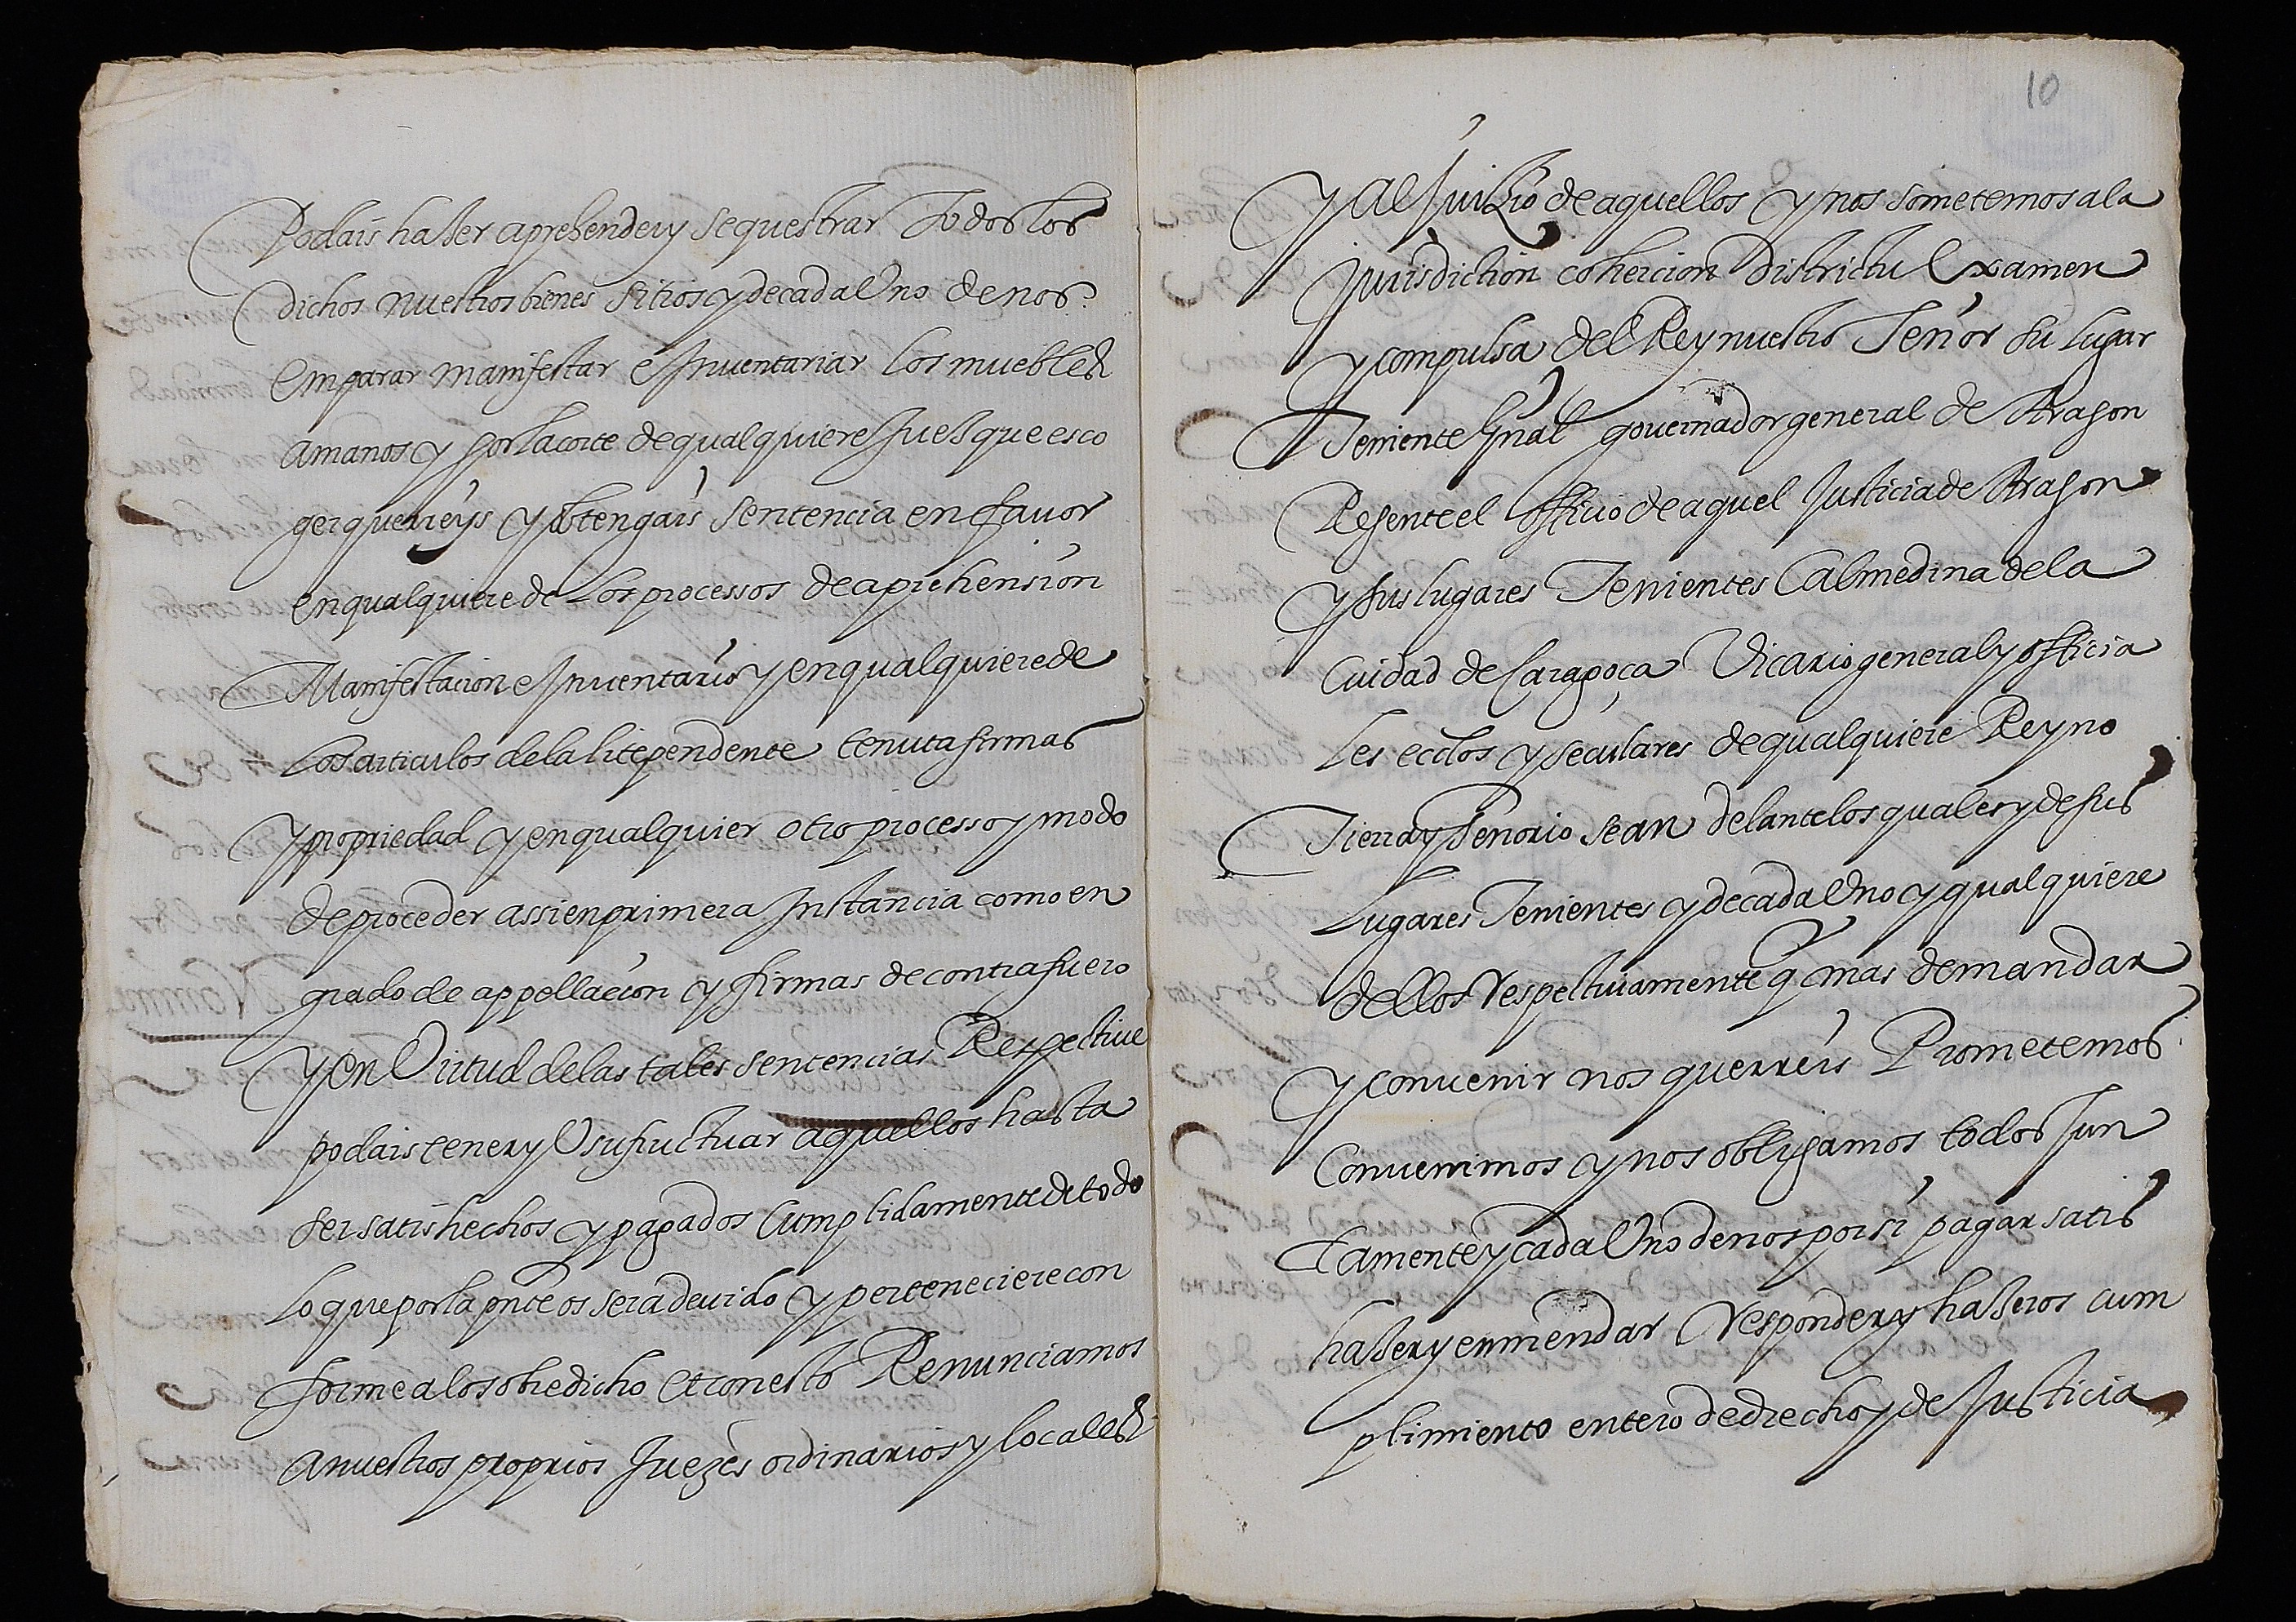 Podais hazer aprehender y sequestrar todos los
dichos nuestros bienes sitios y de cada Uno de nos
emparar manifestar e Inventariar los muebles
a manos y por la corte de qualquiere Juez que esco
ger querreys y obtengais sentencia en favor
en qualquiere de los processos de aprehension
Manifestacion e Inventario y en qualquiere de
los articulos de la litependente tenuta firmas
y propriedad y en qualquier otro processo y modo
de proceder assi en primera Instancia como en
grado de appellacion y firmas de contrafuero
y en Virtud de las tales sentencias Respective
podais tener y Usufructuar aquellos hasta
ser satisfechos y pagados cumplidamente de todo
lo que por la pnte os sera devido y perteneciere con
forme a lo sobredicho et con esto Renunciamos
a nuestros proprios Juezes ordinarios y locales
10
y al Juizio de aquellos y nos sometemos a la
Jurisdiction cohercion districtu Examen
y compulsa del Rey nuestro Señor su lugar
Teniente Gnal governador general de Aragon
Regente el officio de aquel Justicia de Aragon
y sus lugares Tenientes Calmedina de la
Ciudad de Caragoça Vicario general y officia
les eccllos y seculares de qualquiere Reyno
Tierra y Señorio sean delante los quales y de sus
Lugares Tenientes y de cada Uno y qualquiere
dellos respectivamente q mas demandar
y convenir nos querreis Prometemos
Convenimos y nos obligamos todos Jun
tamente y cada Uno de nos por si pagar satis
hazer y enmendar responder y hazeros cum
plimiento entero de drecho y de Justicia